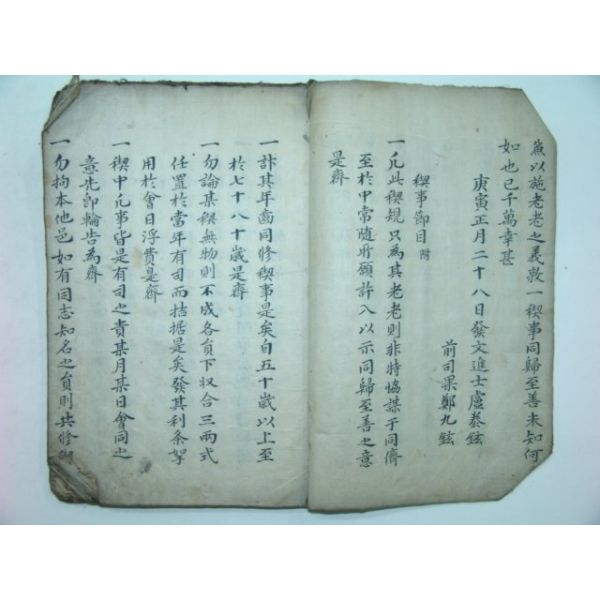 無以施老老之義敦一稧事同歸至善未知何
如也已千萬幸甚
庚寅正月二十八日發文進士盧泰鉉
前司果鄭九鉉
稧事節目附
一凡此稧規只為其老老則非特恊謀于同儕
至於中常随所願許入以示同歸至善之意
是齊
一計其年齒同修稧事是矣自五十歲以上至
於七十八十歲是齊
一勿論某稧無物則不成各員下収合三兩式
任置於當年有司而拮据是矣發其利条
用於會日浮費是齊
一稧中凡事皆是有司之責某月某日會同之
意先即輪告為齊
一勿拘本他邑如有同志知名之員則共修